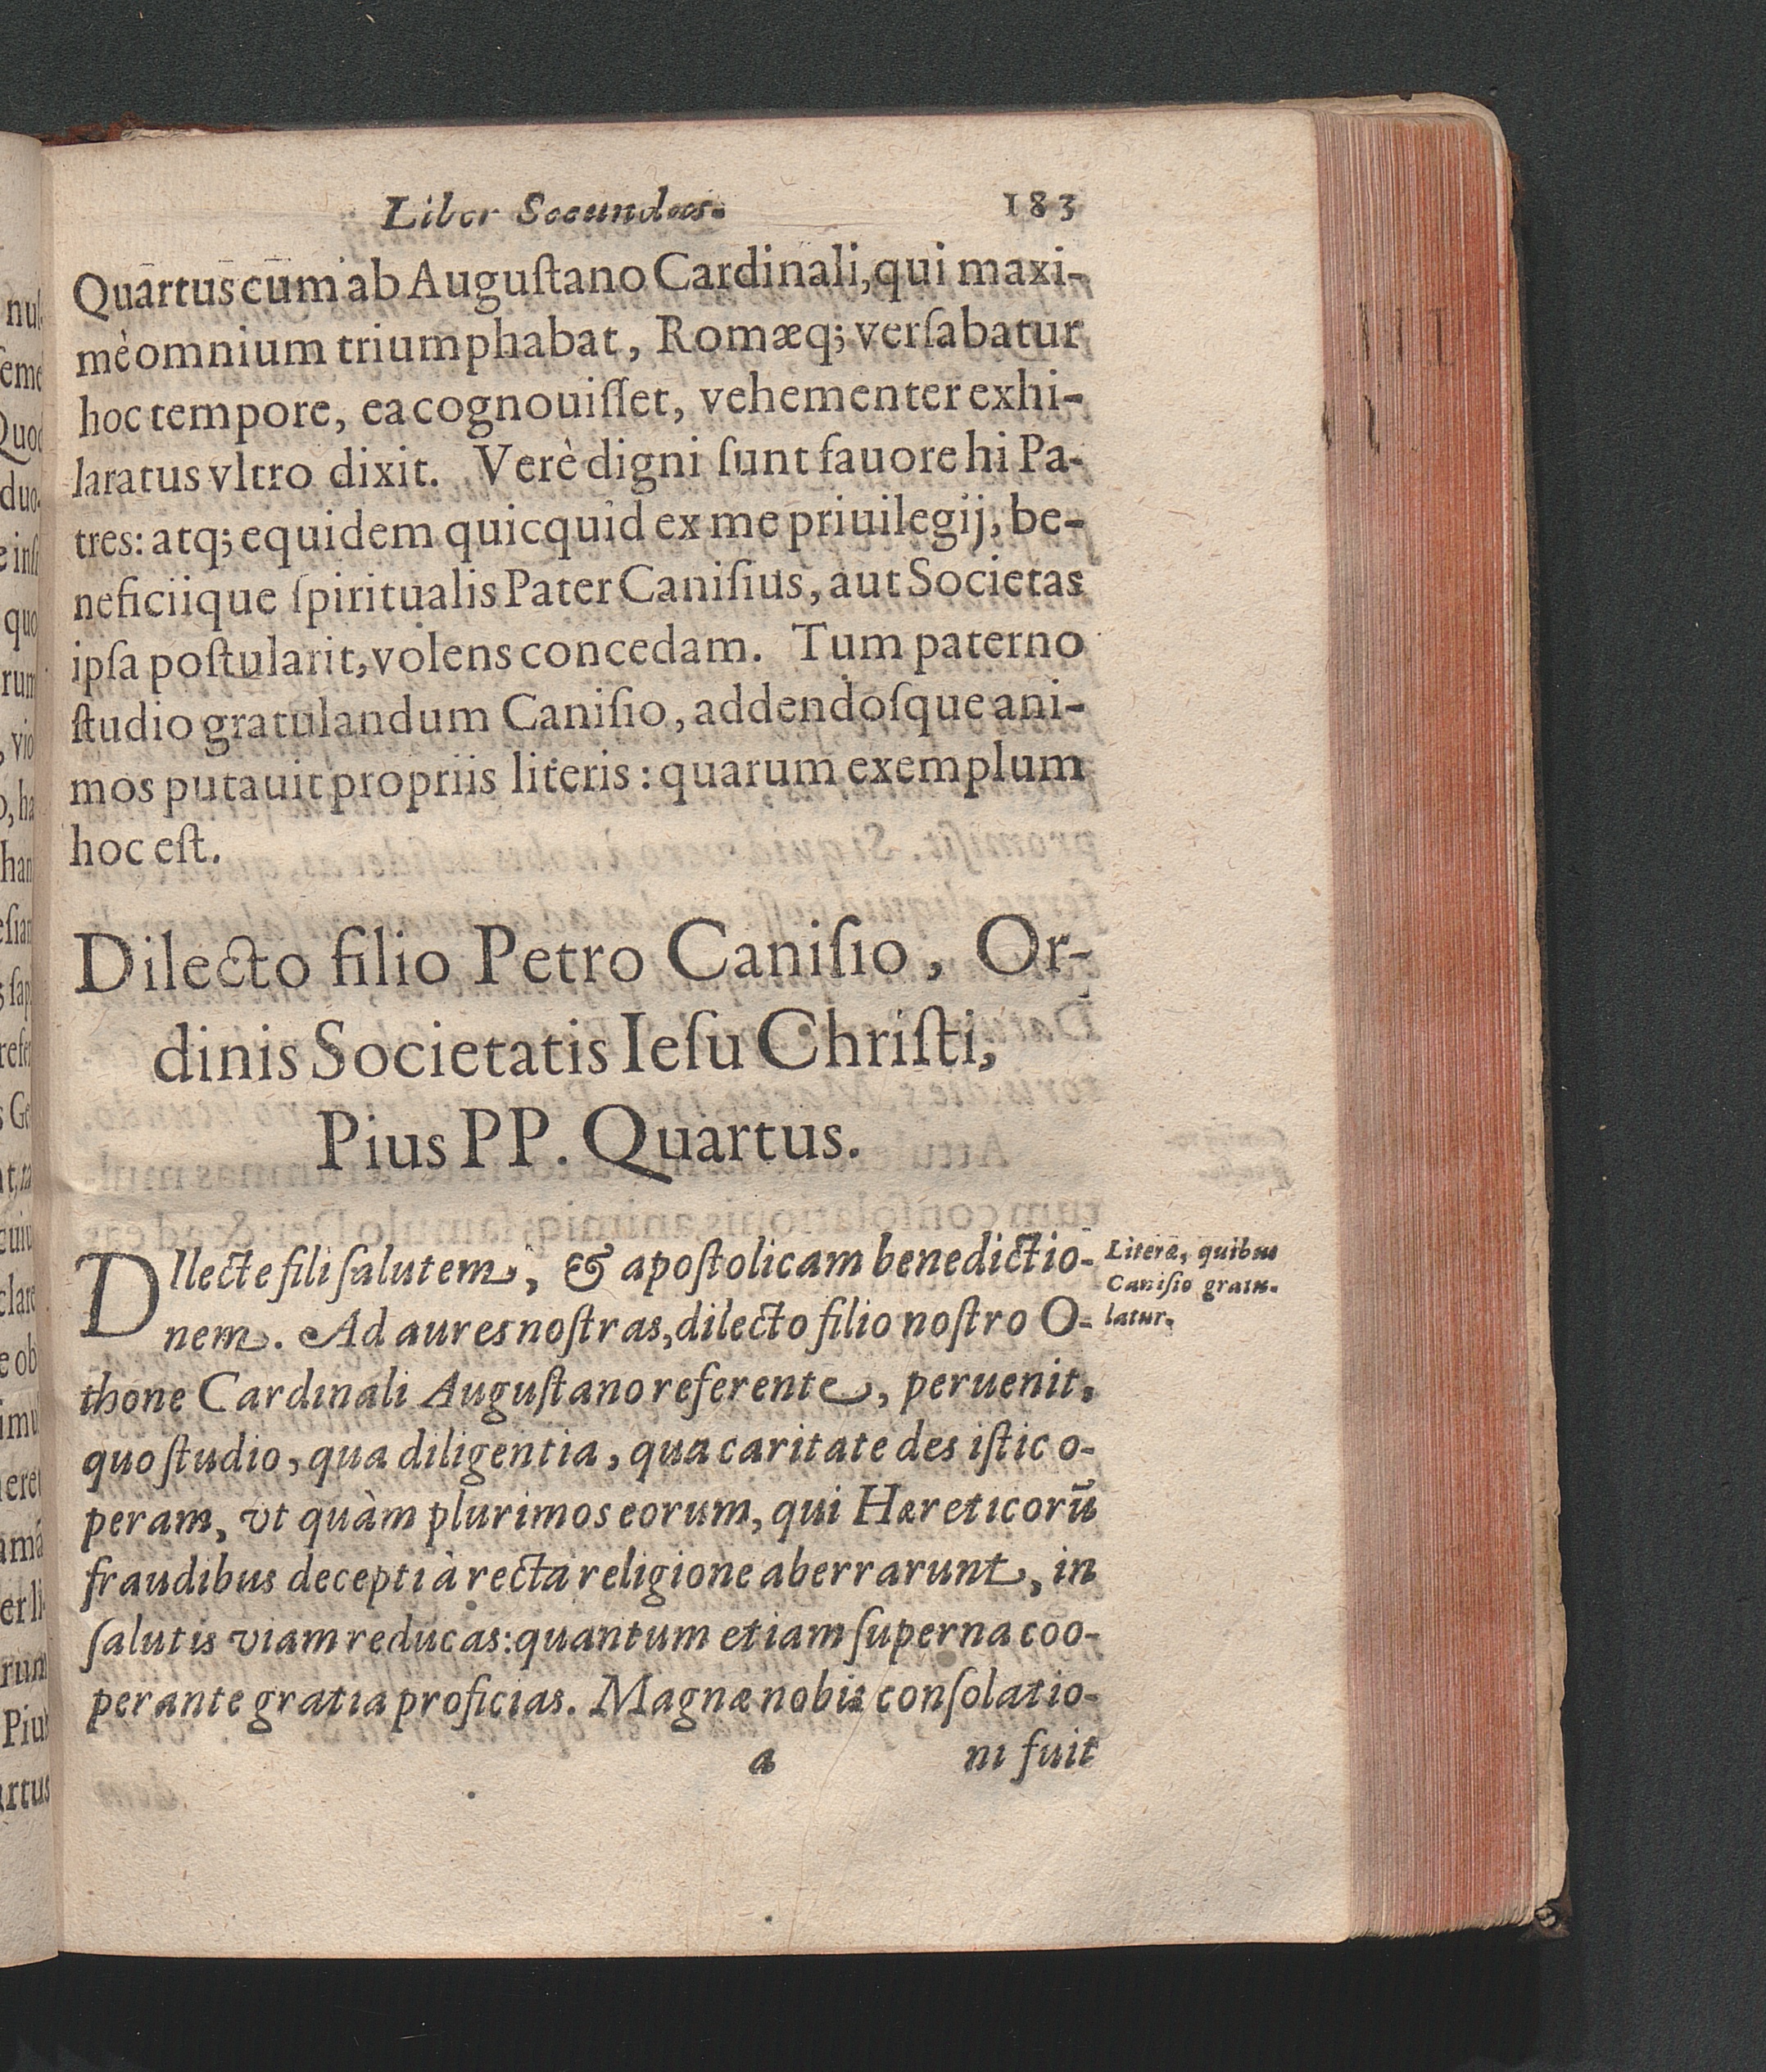 Liber Secundus. 183
Quartus cum ab Auguſtano Cardinali, qui maxi-
mè omnium triumphabat, Romæq; verſabatur
hoc tempore, ea cognouiſſet, vehementer exhi-
laratus vltro dixit. Verè digni ſunt fauore hi Pa-
tres: atq; equidem quicquid ex me priuilegij, be-
neficiique ſpiritualis Pater Caniſius, aut Societas
ipſa poſtularit, volens concedam. Tum paterno
ſtudio gratulandum Caniſio, addendoſque ani-
mos putauit propriis literis: quarum exemplum
hoc eſt.
Dilecto filio Petro Caniſio, Or-
dinis Societatis Ieſu Chriſti,
Pius PP. Quartus.
DIlecte fili ſalutem, & apoſtolicam benedictio-
nem. Ad aures noſtras, dilecto filio noſtro O-
thone Cardinali Auguſtano referente, peruenit,
quo ſtudio, qua diligentia, qua caritate des iſtic o-
peram, vt quàm plurimos eorum, qui Hæreticorū
fraudibus decepti à recta religione aberrarunt, in
ſalutis viam reducas: quantum etiam ſuperna coo-
perante gratia proficias. Magnæ nobis conſolatio-
a ni fuit
Literæ, quibus
Caniſio gratu-
latur.